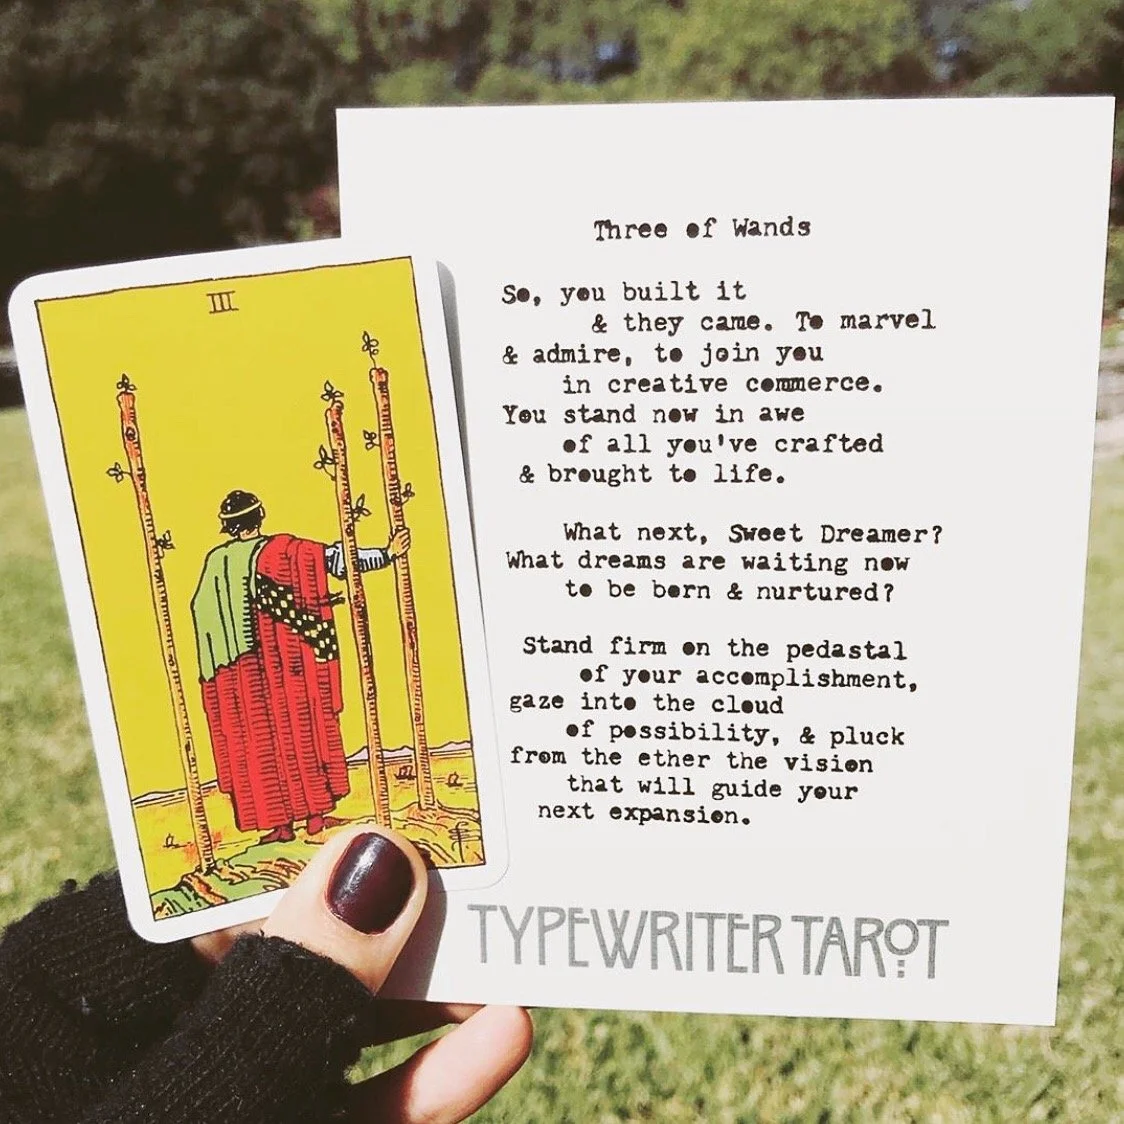 III
Three of Wands
So, you built it
& they came. To marvel
& admire, to join you
in creative commerce.
You stand now in awe
of all you've crafted
& brought to life.
What next, Sweet Dreamer?
What dreams are waiting now
to be born & nurtured?
Stand firm on the pedastal
of your accomplishment,
gaze into the cloud
of possibility, & pluck
from the ether the vision
that will guide your
next expansion.
TYPEWRITER TAROT